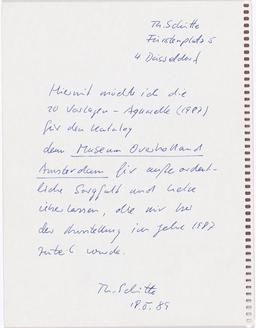 Th. Schütte
Fürstenplatz 5
4 Düsseldorf
Hiermit möchte ich die
20 Vorlagen - Aquarelle (1987)
für den Katalog
dem Museum Overholland
Amsterdam für außerordent-
liche Sorgfalt und Liebe
überlassen, die mir bei
der Ausstellung im Jahre 1987
zuteil wurde.
Th. Schütte
18.5.89